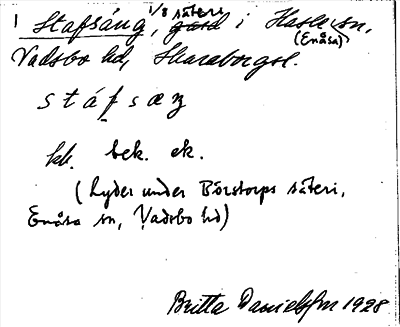 1 Stafsäng, 1/8 säteri i Hasle sn,
(Enåsa)
Vadsbo hd, Skaraborgsl.
s t á f s æ ŋ
bek. ek.
(Lyder under Börstorps säteri,
Enåsa sn, Vadsbo hd)
Britta Danielson 1928